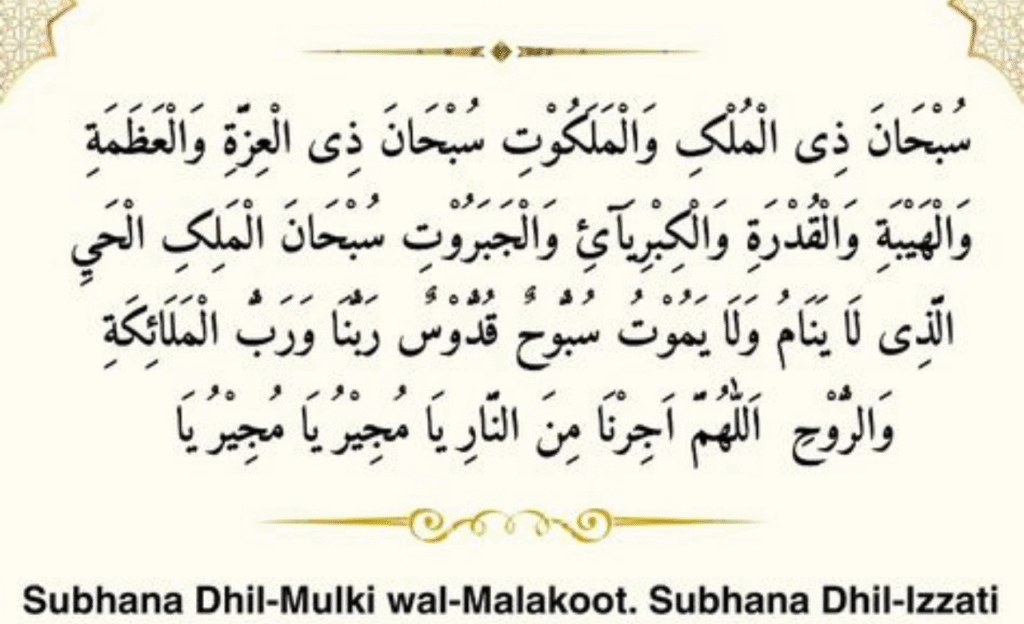 سُبْحَانَ ذِی الْمُلْکِ وَالْمَلَكُوْتِ سُبْحَانَ ذِی الْعِزَّةِ وَالْعَظَمَةِ
وَالْهَيْبَةِ وَالْقُدْرَةِ وَالْكِبْرِيَآئِ وَالْجَبَرُوْتِ سُبْحَانَ الْمَلِکِ الْحَيِ
الَّذِی لَا يَنَامُ وَلَا يَمُوْتُ سُبُّوحٌ قُدُّوْسٌ رَبُّنَا وَرَبُّ الْمَلَائِكَةِ
وَالرُّوْحِ اَللّٰهُمَّ اَجِرْنَا مِنَ النَّارِ يَا مُجِيْرُ يَا مُجِيْرُ يَا
Subhana Dhil-Mulki wal-Malakoot. Subhana Dhil-Izzati